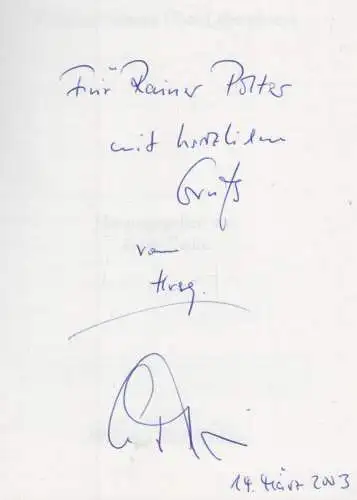 Für Rainer Polter
mit herzlichem
Gruß
vom
Hrsg.
14. März 2003